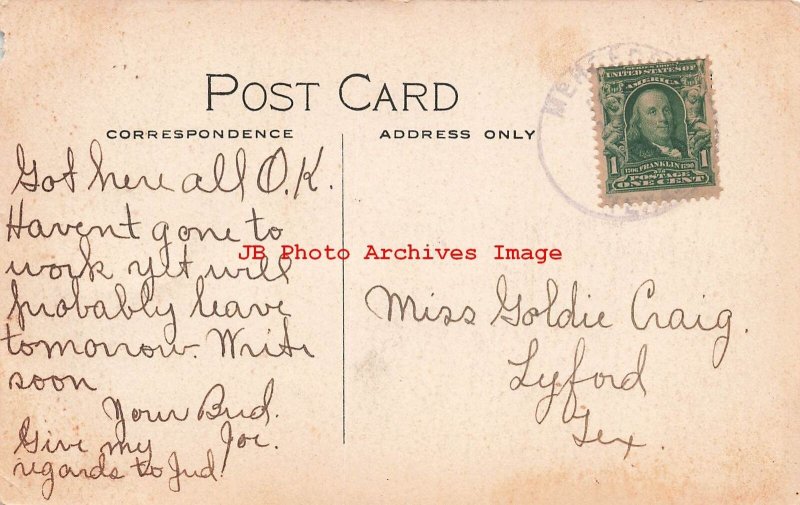 POST CARD
CORRESPONDENCE
ADDRESS ONLY
UNITED STATES OF
AMERICA
1 FRANKLIN 1
POSTAGE
ONE CENT
Got here all O.K.
Havent gone to
work yet will
probably leave
tomorrow. Write
soon
Your Bud.
Joe.
Give my
regards to Jud
Miss Goldie Craig.
Lyford
Tex.
JB Photo Archives Image